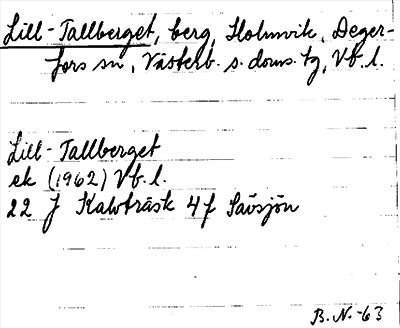 Lill-Tallberget, berg, Holmvik, Deger-
fors sn, Västerb. s. doms. tg, Vb. l.
Lill-Tallberget
ek (1962) Vb. l.
22 J Kalvträsk 4f Sävsjön
B. N. -63